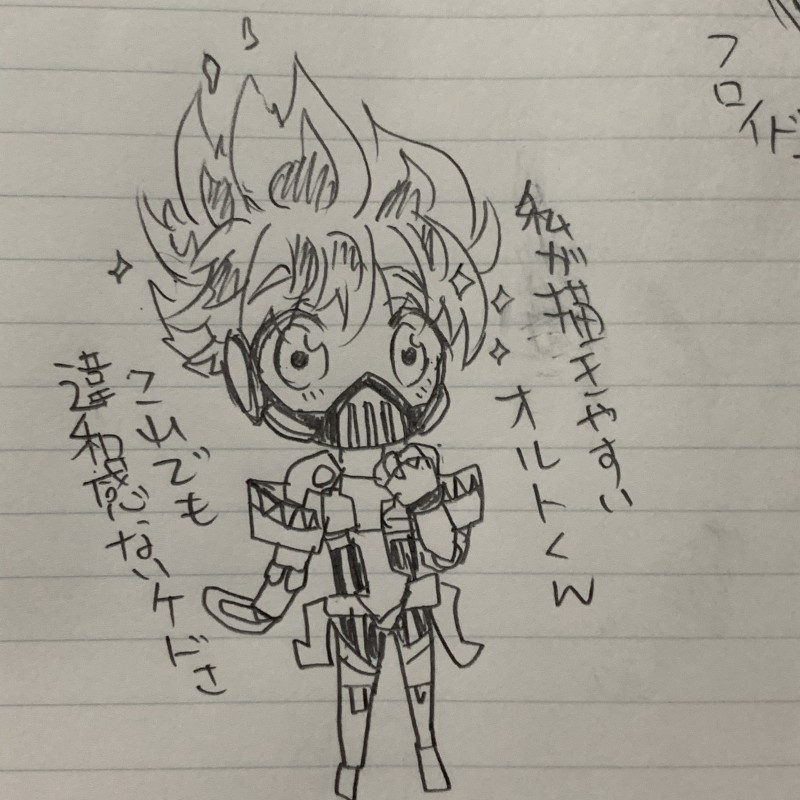 フロイド
私が描きやすい
オルトくんw
これでも
違和感ないケドさ